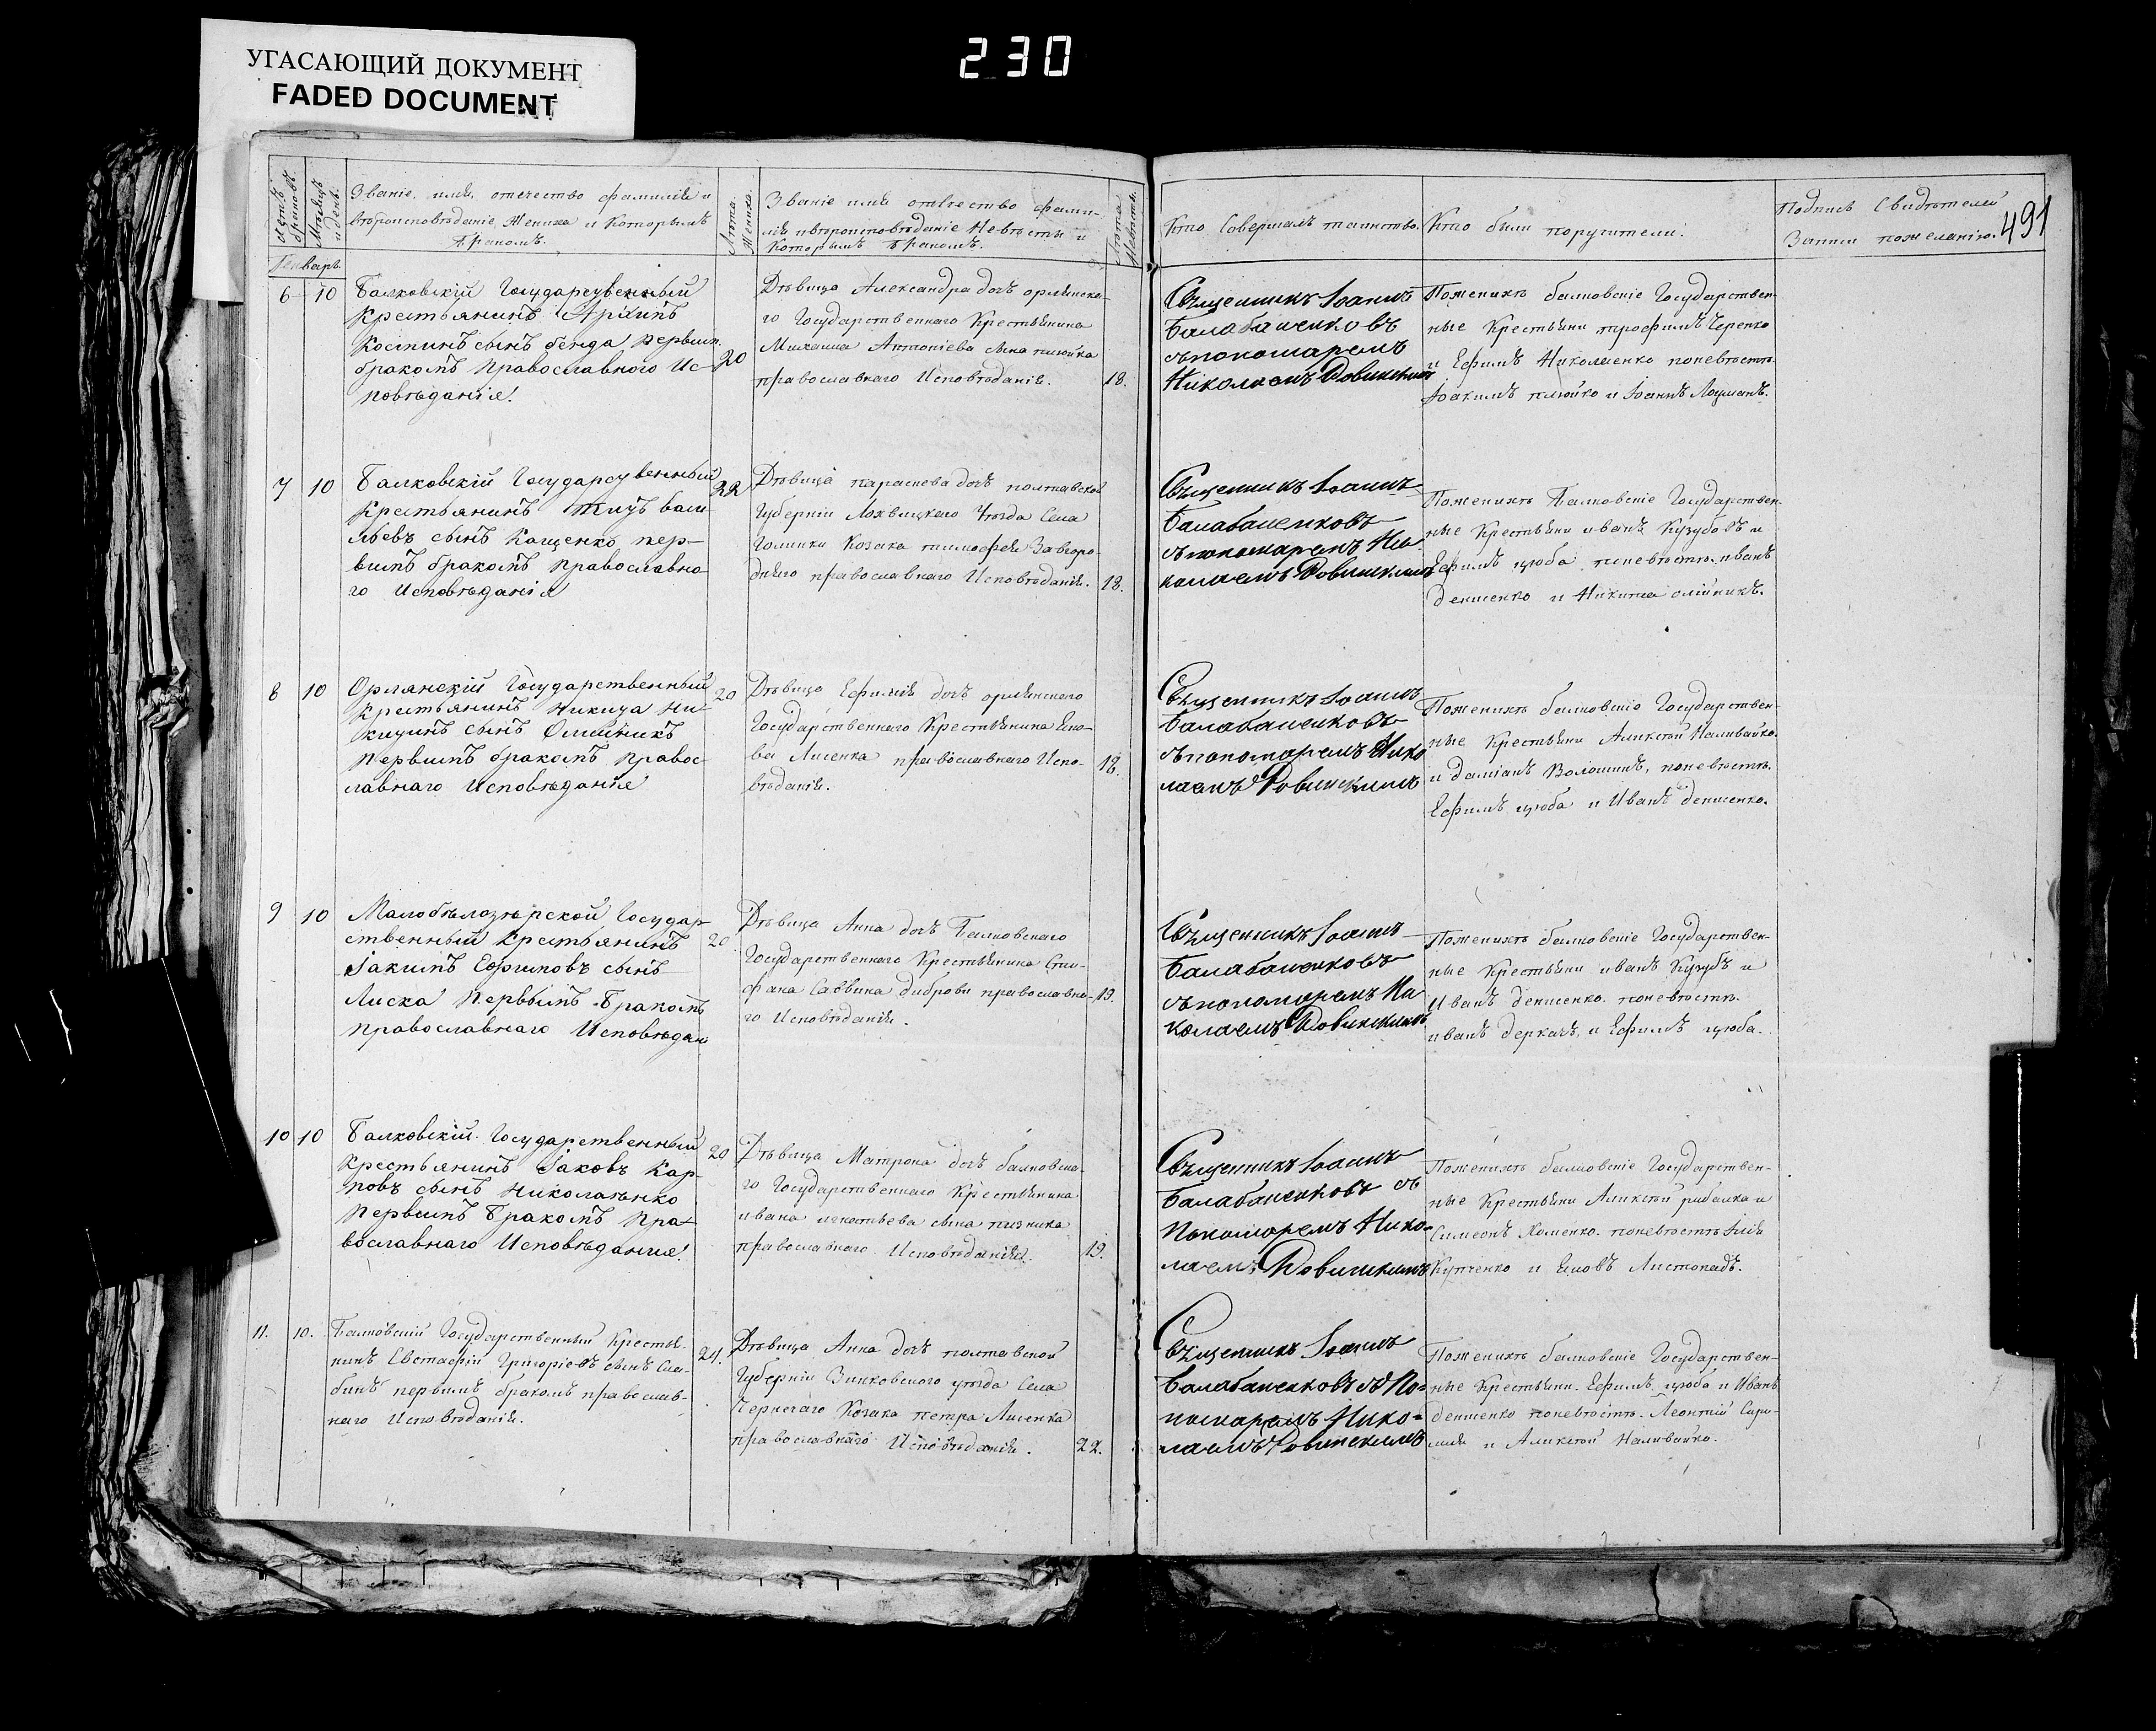 УГАСАЮЩИЙ ДОКУМЕНТ
FADED DOCUMENT
230
491
Званіе, имя, отечество фамилія и
вѣроисповѣданіе Жениха и Которымъ
Бракомъ.
Лѣта
Жениха.
Званіе имя отечество фами-
лія и вѣроисповѣданіе Невѣсты и
Которымъ Бракомъ.
Лѣта
Невѣсты.
Кто Совершалъ таинство.
Кто были поручители.
Подпись Свидѣтелей
Записи пожеланію.
Генварь
6 10
Балковскій Государсувенный
Крестьянинъ Архипъ
Костинъ сынъ бенда первым.
бракомъ Православного Ис-
повѣданія.
20
Дѣвица Александра дочъ орлянска-
го Государственнаго Крестьянина
Михаила Антоніева сына плюйка
православнаго Исповѣданія.
18.
Священникъ Іоаннъ
Балабаненковъ
съ пономаремъ
Николаемъ Ровинскимъ
Поженихѣ балковскіе Государствен-
ные Крестьяни трофимъ Черепко
и Ефимъ Николаенко поневѣстѣ
Іоакимъ плюйко и Іоаннъ Лоцманъ.
7 10
Балковскій Государсувенный
Крестьянинъ титъ васи-
льевъ сынъ Кащенко пер-
вымъ бракомъ православно-
го Исповѣданія
22
Дѣвица параскева дочъ полтавской
Губерніи Лохвицкаго Уѣзда Села
Голинки Козака тимофея Завгоро-
дняго православнаго Исповѣданія.
18.
Священникъ Іоаннъ
Балабаненковъ
съ пономаремъ Ни
колаемъ Ровинскимъ
Поженихѣ Балковскіе Государствен-
ные Крестьяни иванъ Кузубовъ и
Ефимъ цюба поневѣстѣ иванъ
денисенко и Никита олійникъ.
8 10
Орлянскій Государственный
Крестьянинъ Никита Ни-
китинъ сынъ Олійникъ
первымъ бракомъ правос-
лавнаго Исповѣданіе
20
Дѣвица Ефимія дочъ орлянскаго
Государственнаго Крестьянина Еко-
ва Лисенка православнаго Испо-
вѣданія.
18.
Священникъ Іоаннъ
Балабаненковъ
съ пономаремъ Нико
лаемъ Ровинскимъ
Поженихѣ балковскіе Государствен-
ные Крестьяни Аликсѣй Наливайко.
и даміанъ Волошинъ, поневѣстѣ.
Ефимъ цюба и Иванъ денисенко.
9 10
Малобѣлозѣрской Государ-
ственный Крестьянинъ
Іакимъ Ефимовъ сынъ
Лиска первымъ Бракомъ
православнаго Исповѣдан
20
Дѣвица Анна дочъ Балковскаго
Государственнаго Крестьянина Сте-
фана Саввина диброви православна-
го Исповѣданія.
19.
Священникъ Іоаннъ
Балабаненковъ
съ пономаремъ Ни
колаемъ Ровинскимъ
Поженихѣ балковскіе Государствен-
ные Крестьяни иванъ Кузубъ и
Иванъ денисенко. поневѣстѣ.
иванъ деркачъ, и Ефимъ цюба.
10 10
Балковскій Государственный
Крестьянинъ Іаковъ Кар-
повъ сынъ Николаенко
первымъ Бракомъ пра-
вославнаго Исповѣдания.
20
Дѣвица Матрона дочъ балковска-
го Государственнаго Крестьянина
ивана игнатьева сына пизника
православнаго Исповѣданія.
19.
Священникъ Іоаннъ
Балабаненковъ съ
Пономаремъ Нико-
лаемъ Ровинскимъ
Поженихѣ балковскіе Государствен-
ные Крестьяни Аликсѣй рибалка и
Симеонъ Хоменко. поневѣстѣ Илія
Купченко и Ековъ Листопадъ.
11. 10.
Балковскій Государственный Крестья-
нинъ Евстафій Григоріевъ сынъ Сла-
бинъ первымъ бракомъ православ-
наго Исповѣданія.
21.
Дѣвица Анна дочъ полтавской
Губерніи Зинковского уѣзда Села
Чернечаго Козака петра Лисенка
православнаго Исповѣданія.
22.
Священникъ Іоаннъ
Балабаненковъ съ По=
номаремъ Нико=
лаемъ Ровинскимъ
Поженихѣ балковскіе Государствен-
ные Крестьяни. Ефимъ цюба и Иванъ
денисенко поневѣстѣ. Леонтій
и Аликсѣй Наливайко.